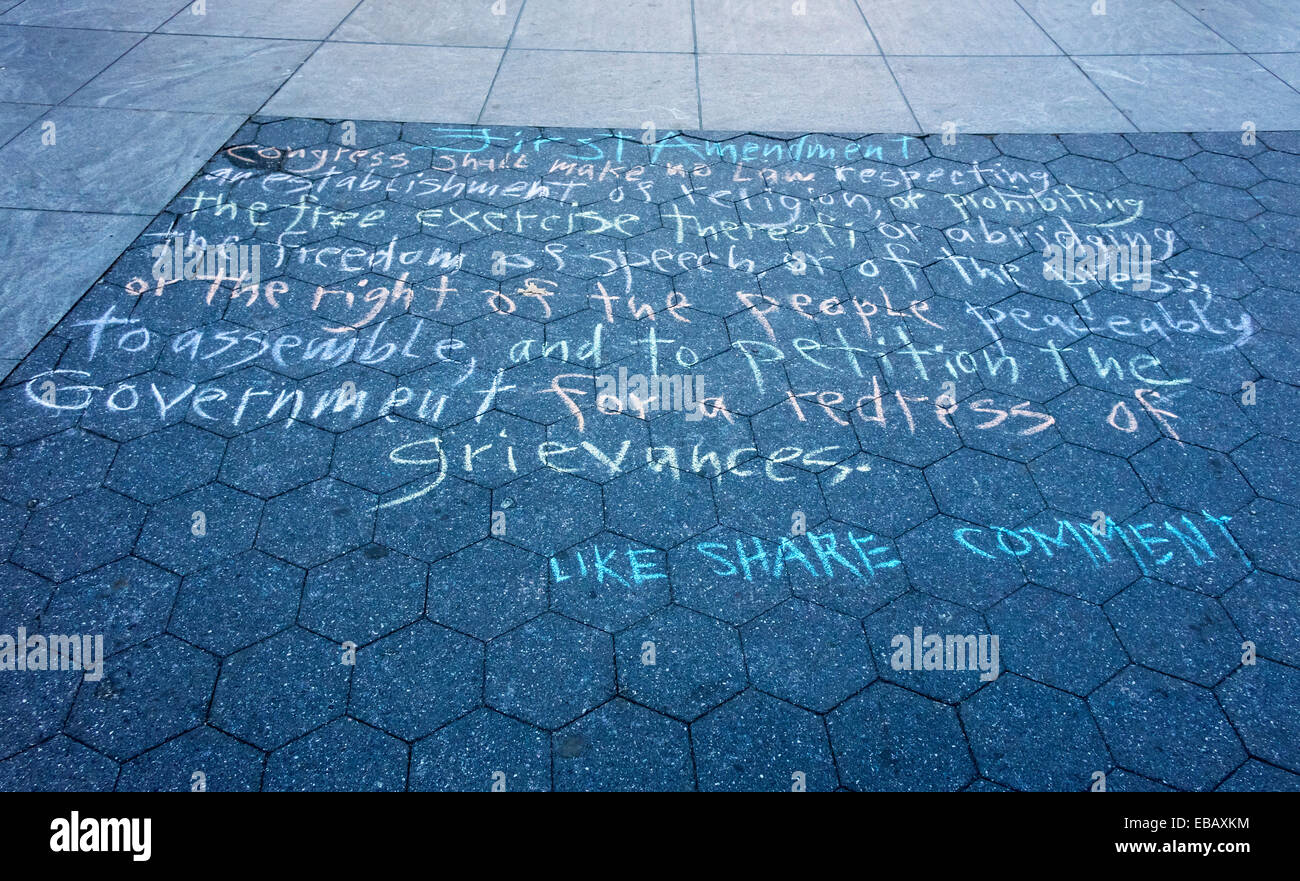 First Amendment
Congress shall make no law respecting
an establishment of religion, or prohibiting
the free exercise thereof; or abridging
the freedom of speech, or of the press;
or the right of the people peaceably
to assemble, and to petition the
Government for a redress of
grievances.
LIKE SHARE COMMENT
alamy stock photo
EBAXKM
www.alamy.com